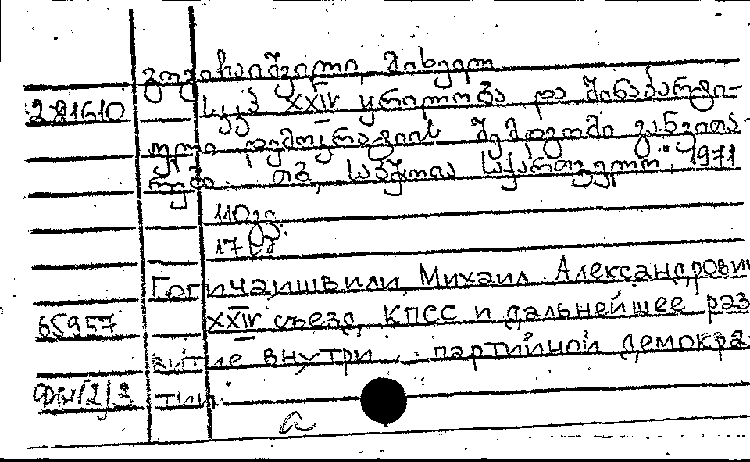 გოგიჩაიშვილი, მიხეილ
281610 სკკპ XXIV ყრილობა და შინაპარტი-
ული დემოკრატიის შემდგომი განვითა-
რება. თბ., საბჭოთა საქართველო, 1971
110 გვ.
Гогичаишвили, Михаил Александрович
65957 XXIV съезд КПСС и дальнейшее раз
витие внутри партийной демокра-
тии.
а